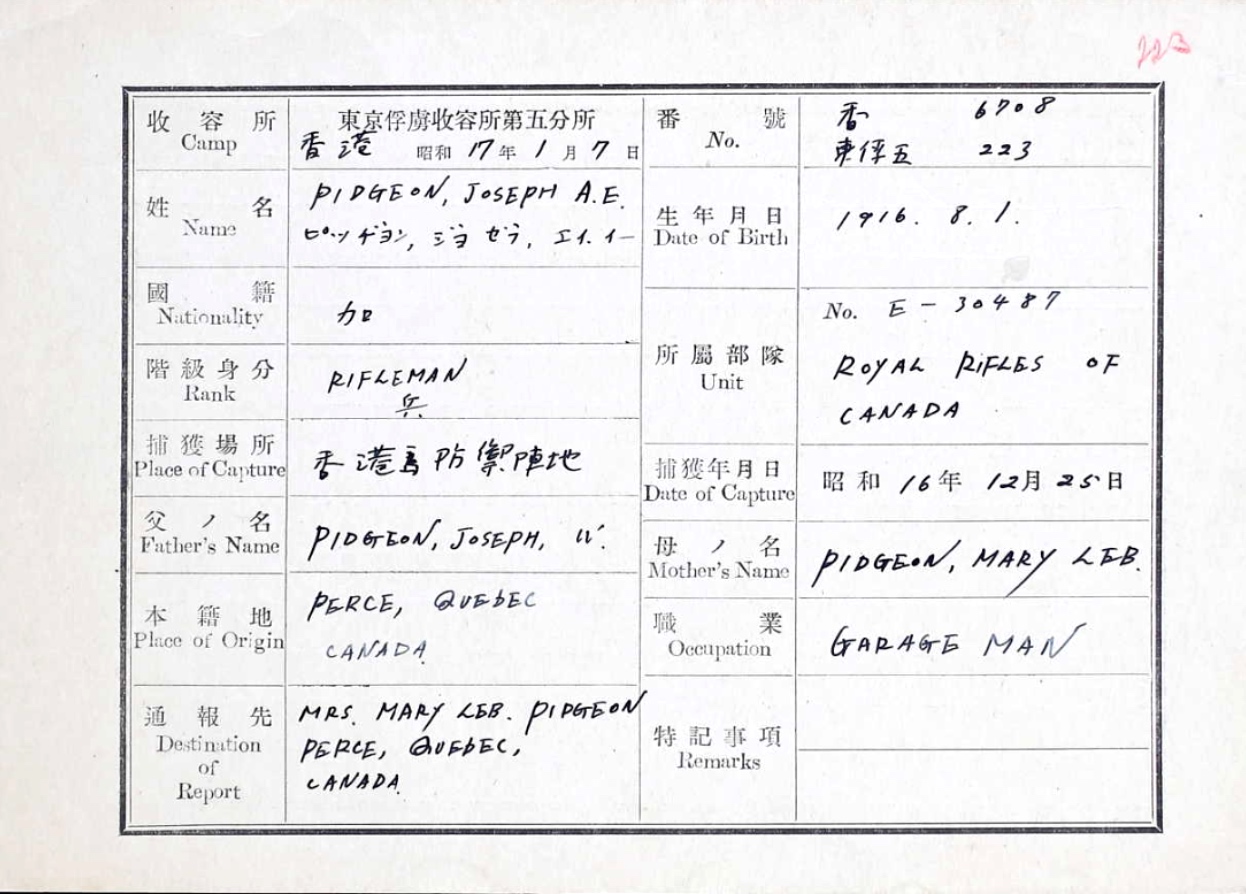 223
收容所 Camp
東京俘虜收容所第五分所
香港 昭和 17 年 1 月 7 日
番號 No.
香 6708
東俘五 223
姓名 Name
PIDGEON, JOSEPH A.E.
ピッヂヨン, ジョゼフ, エイ.イー
生年月日 Date of Birth
1916. 8. 1.
國籍 Nationality
加
階級身分 Rank
RIFLEMAN
兵
所屬部隊 Unit
No. E-30487
ROYAL RIFLES OF
CANADA
捕獲場所 Place of Capture
香港島防禦陣地
捕獲年月日 Date of Capture
昭和 16年 12月 25日
父ノ名 Father's Name
PIDGEON, JOSEPH,
母ノ名 Mother's Name
PIDGEON, MARY LEB.
本籍地 Place of Origin
PERCE, QUEBEC
CANADA
職業 Occupation
GARAGE MAN
通報先 Destination of Report
MRS. MARY LEB. PIDGEON
PERCE, QUEBEC,
CANADA
特記事項 Remarks